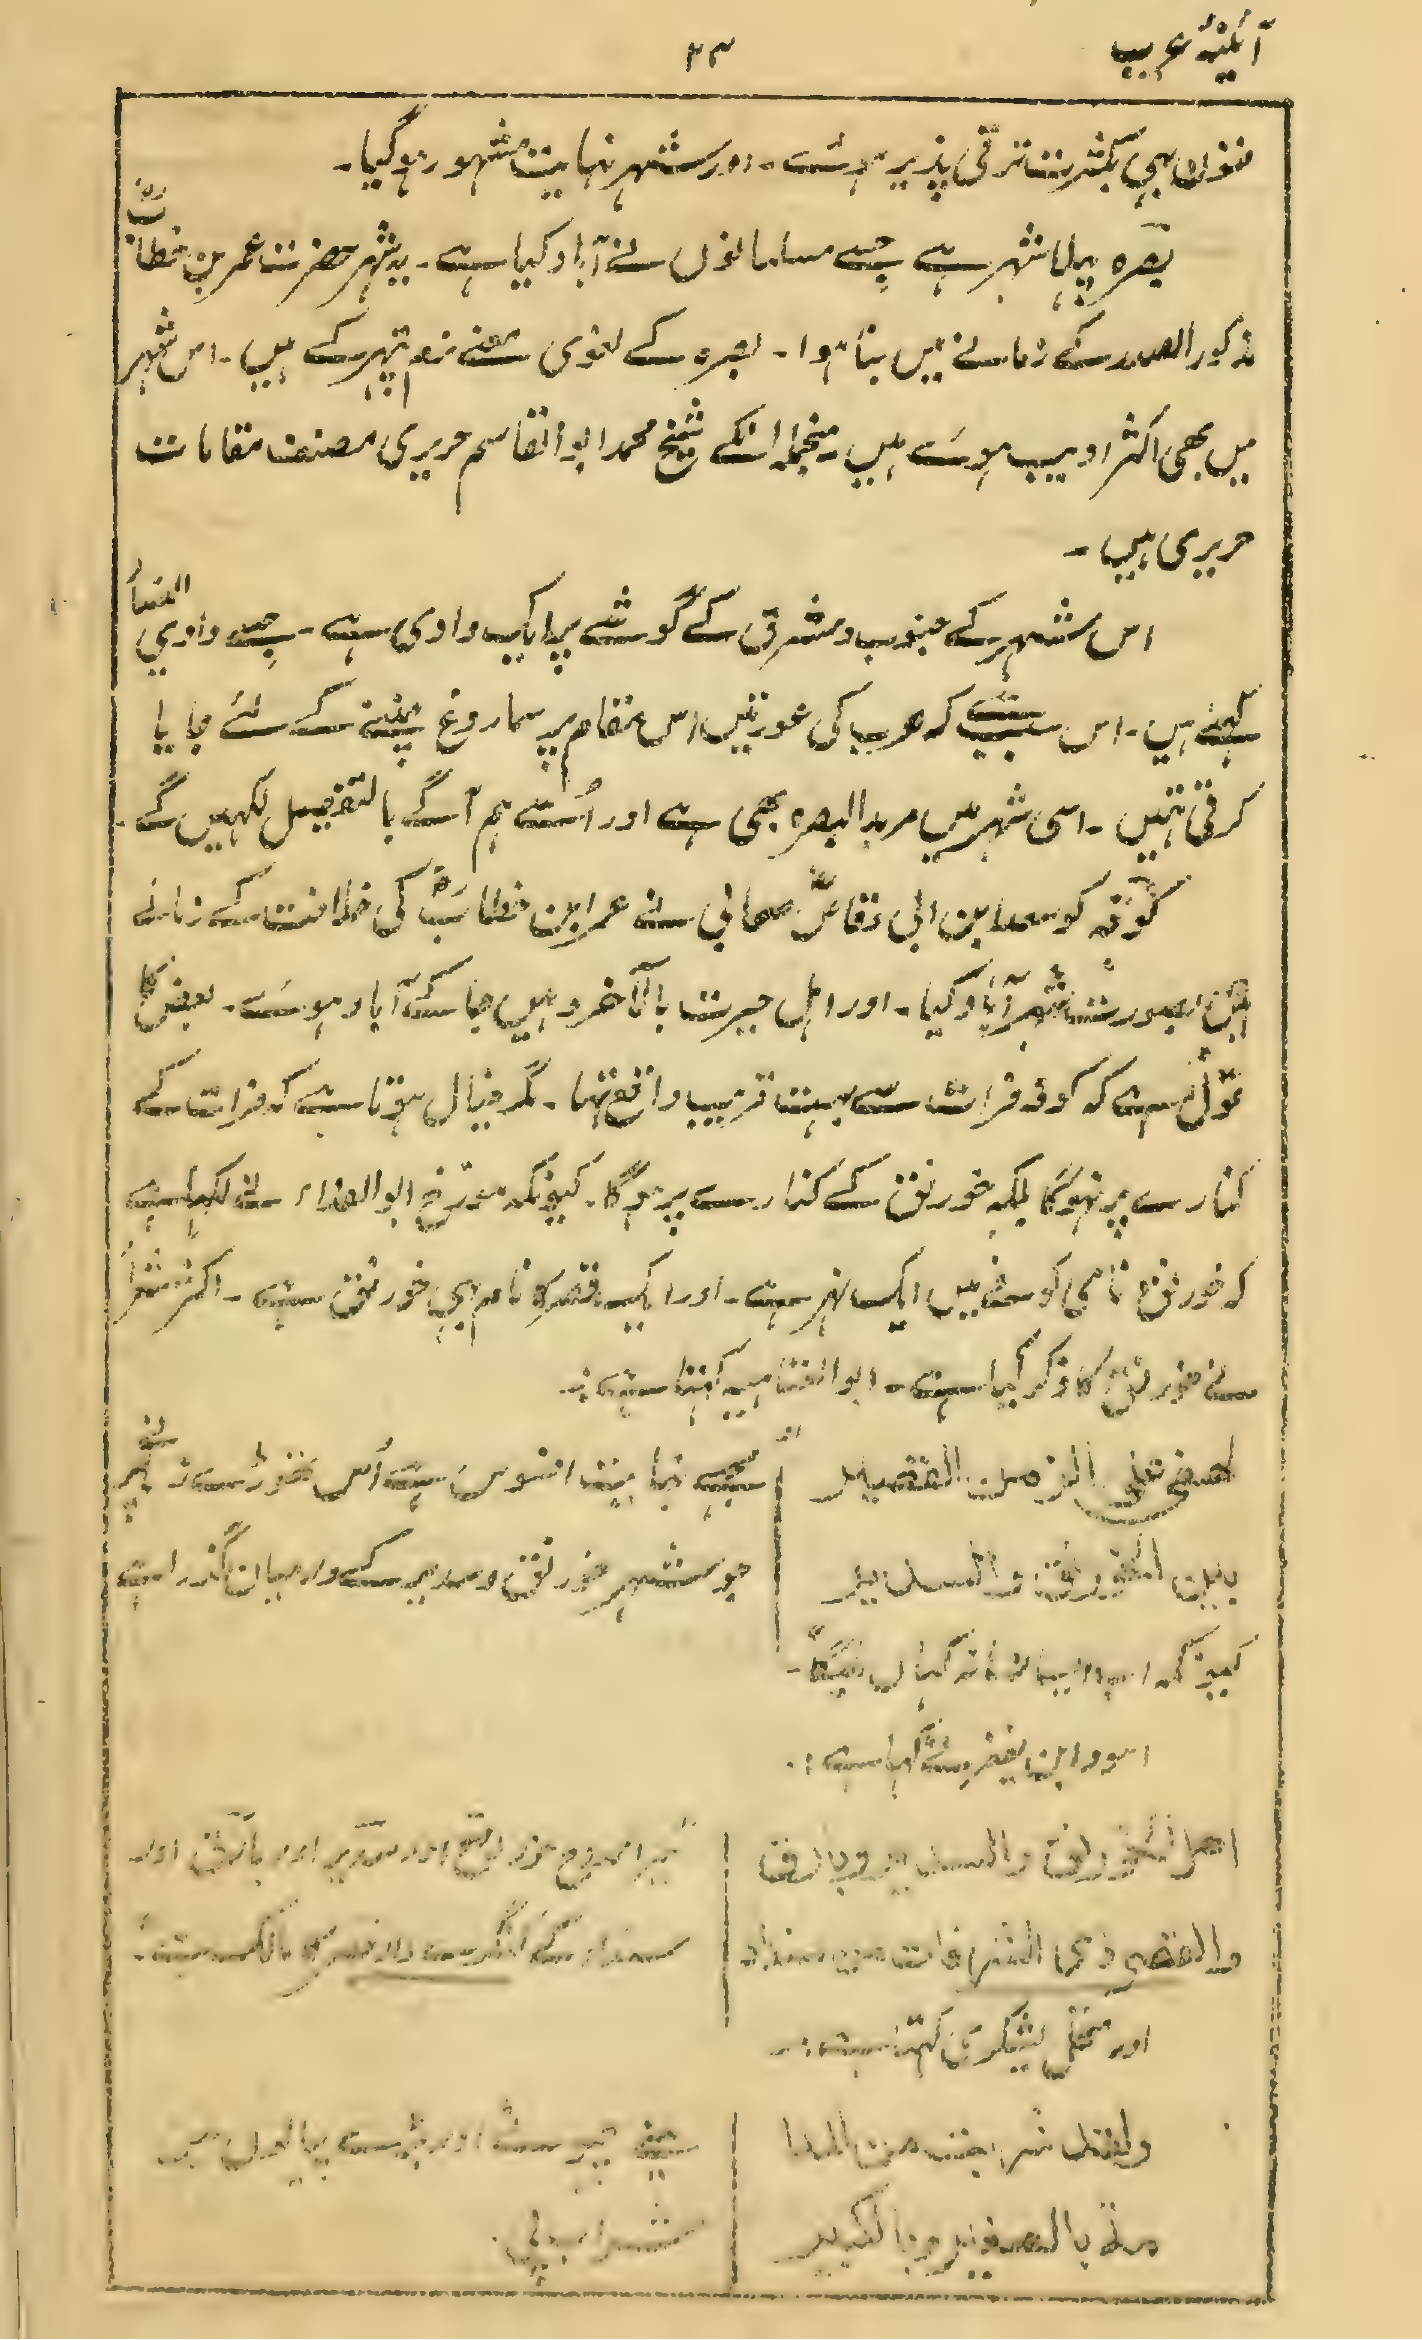 آئینۂ عرب
۳۳
فنون بھی بکثرت ترقی پذیر ہوئے۔ اور شہر نہایت مشہور ہوگیا۔
بصرہ پہلا شہر ہے جسے مسلمانوں نے آباد کیا ہے۔ یہ شہر حضرت عمر بن خطابؓ
مذکور الصدر کے زمانے میں بنا ہوا۔ بصرہ کے لغوی معنے نرم پتہر کے ہیں۔ اس شہر
میں بھی اکثر ادیب ہوئے ہیں۔ منجملہ انکے شیخ محمد ابو القاسم حریری مصنف مقامات
حریری ہیں۔
اس شہر کے جنوب و مشرق کے گوشے پر ایک وادی ہے۔ جسے وادی النساء
کہتے ہیں۔ اس سبب سے کہ عرب کی عورتیں اس مقام پر سماروغ چننے کے لئے جایا
کرتی تہیں۔ اسی شہر میں مربد البصرہ بھی ہے اور اُسے ہم آگے بالتفصیل لکہیں گے۔
کوفہ کو سعد ابن ابی وقاصؓ صحابی نے عمر ابن خطابؓ کی خلافت کے زمانے
میں بصورت شہر آباد کیا۔ اور اہل حیرت بالآخر وہیں جا کے آباد ہوئے۔ بعض کا
قول ہے کہ کوفہ فرات سے بہت قریب واقع تہا۔ مگر خیال ہوتا ہے کہ فرات کے
کنارے پر نہوگا بلکہ خورنق کے کنارے پر ہوگا۔ کیونکہ مورّخ ابو الفداء نے لکہا ہے
کہ خورنق نامی کوفے میں ایک نہر ہے۔ اور ایک قصر کا نام بہی خورنق ہے۔ اکثر شعراء
نے خورنق کا ذکر کیا ہے۔ ابو العتاہیہ کہتا ہے:۔
لهفي على الزمن القصير
مجہے نہایت افسوس ہے اُس تہوڑے زمانے پر
بين الخورنق والسدير
جو شہر خورنق و سدیر کے درمیان گذرا ہے
کیونکہ اب ایسا زمانہ کہاں ملیگا۔
اسود ابن یعفر نے کہا ہے:۔
اهل الخورنق والسدير وبارق
میرا ممدوح خورنق اور سدیر اور بارق اور
والقصر ذي الشرفات من سنداد
سنداد کے کنگرے دار قصر کا مالک ہے۔
اور منخل یشکری کہتا ہے:۔
ولقد شربت من المدا
میں نے چہوٹے اور بڑے پیالوں میں
مة بالصغير وبالكبير
شراب پی۔